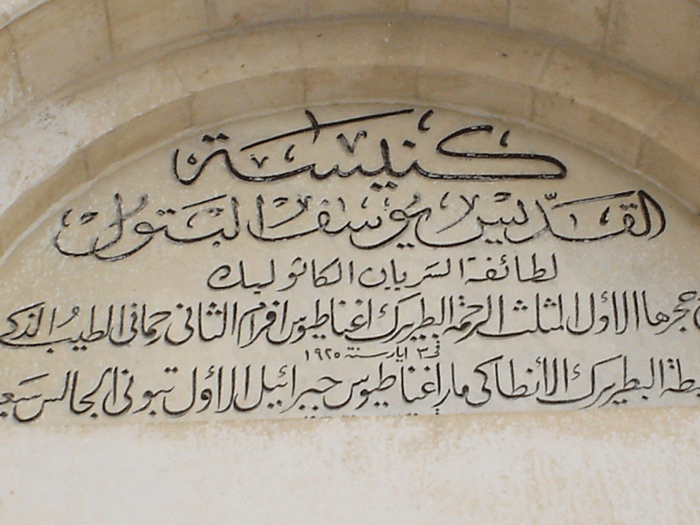 كنيسة
القديس يوسف البتول
لطائفة السريان الكاثوليك
حجرها الاول المثلث الرحمة البطريرك اغناطيوس افرام الثاني رحماني الطيب الذكر
في ٣ ايار سنة ١٩٢٥
البطريرك الأنطاكي مار اغناطيوس جبرائيل الاول تبوني الجالس